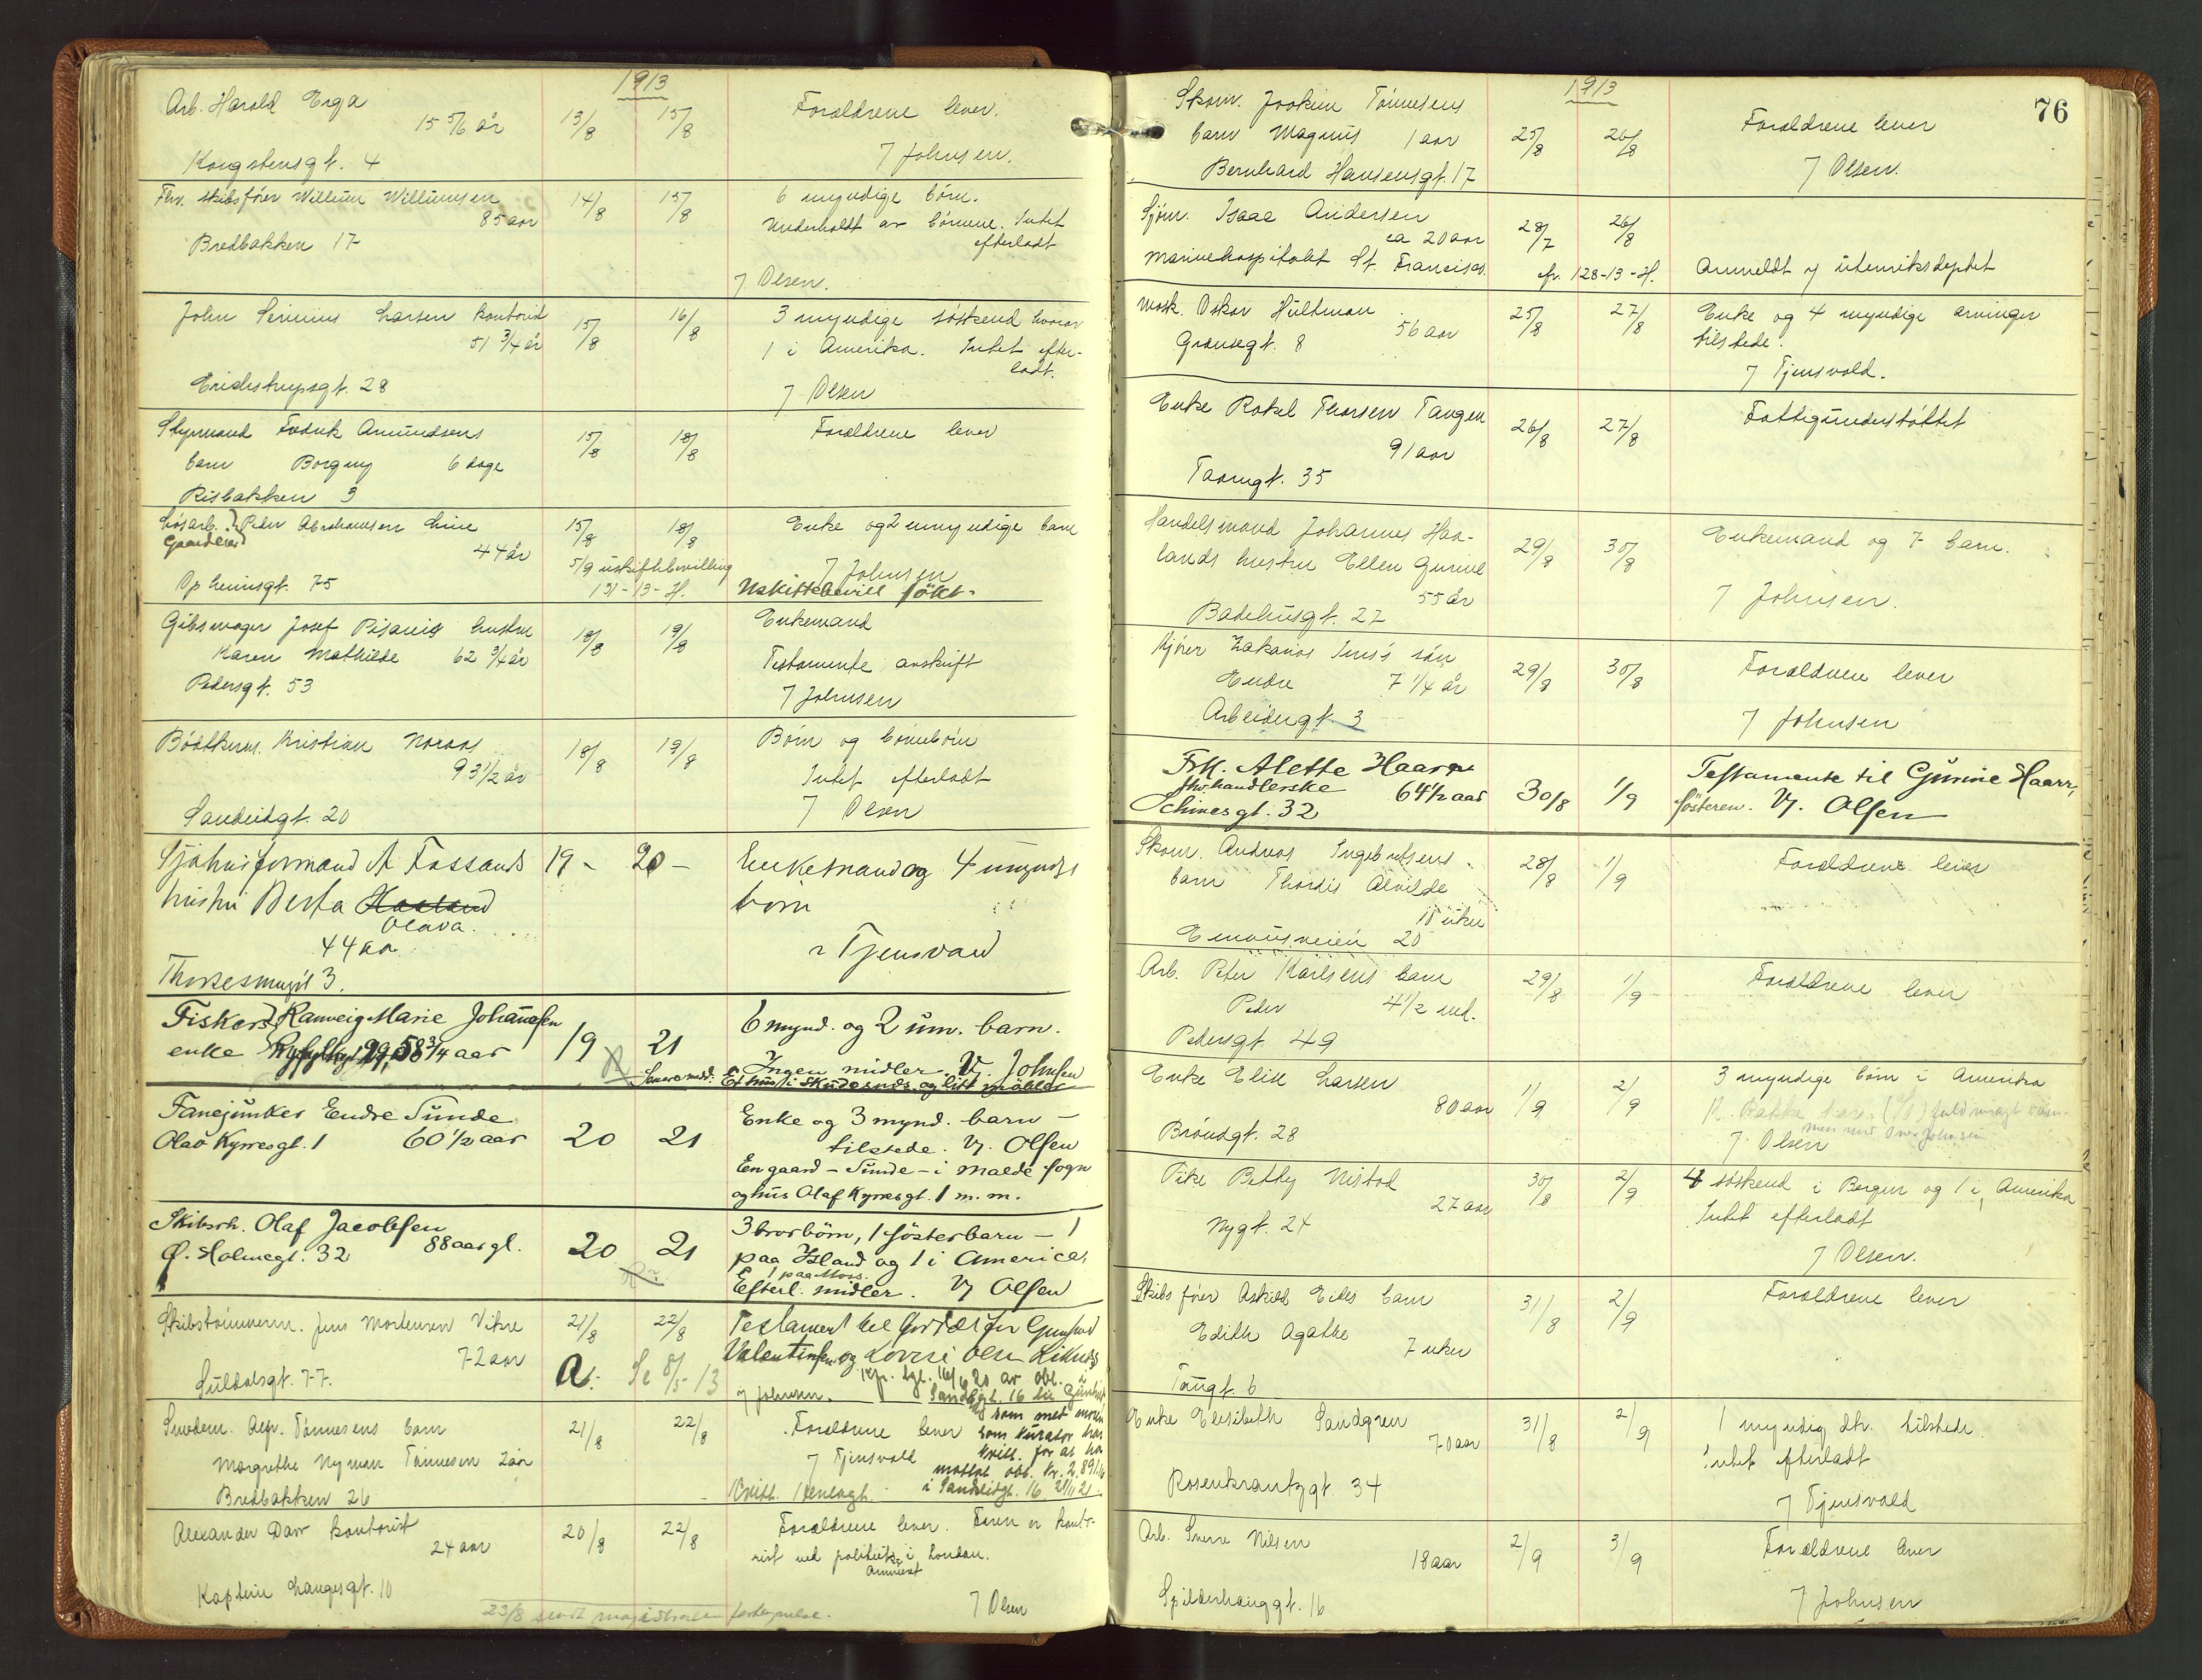 1913
Arb. Harald Erga
15 5/6 år 13/8 15/8 Forældrene lever.
Kongstensgt. 4 7 Johnsen.
Fhv. skibsfører Willum Willumsen
85 aar 14/8 15/8 6 myndige børn.
Underholdt av børnene. Intet
Bredbakken 17 efterladt
7 Olsen.
John Severin Larsen kontorist
51 3/4 år 15/8 16/8 3 myndige søskend hvorav
1 i Amerika. Intet efter-
ladt.
Erichstrupsgt. 28 7 Olsen
Styrmand Fredrik Amundsens
barn Borgny 6 dage 15/8 18/8 Forældrene lever
Risbakken 3
Løsarb. Peder Abrahamsen Line
Gaardeier 44 år 15/8 18/8 Enke og 2 umyndige barn
5/9 uskiftebevilling 7 Johnsen
Opheimsgt. 75 131-13-H. Uskiftebevill søkt.
Gibsmager Josef Pisanis hustru
Karen Mathilde 62 3/4 år 18/8 19/8 Enkemand
Testamente avskrift
Pedersgt. 53 7 Johnsen
Bødtkerm. Kristian Noraas
93 1/2 år 18/8 19/8 Børn og børnebørn
Intet efterladt
Sandeidgt. 20 7 Olsen
Sjøhusformand A Fossands 19 - 20 - Enkemand og 4 umyndige
hustru Berta Haaland børn
Olava.
44 aar
7 Tjensvold
3.
Fiskers Ranveig Marie Johannesen
enke Ryfylkegt 99, 58 3/4 aar 19 21 6 mynd. og 2 um. barn.
Ingen midler. V. Johnsen
Senere medd: Et hus i Skudesnds. og litt møbler
Fanejunker Endre Sunde
Olav Kyrresgt. 1 60 1/2 aar 20 21 Enke og 3 mynd. barn -
tilstede. V. Olsen
En gaard - Sunde - i Malde sogn
og hus Olaf Kyrresgt. 1 m. m.
Skibsrh. Olaf Jacobsen
Ø. Holmegt. 32 88 aar gl. 20 21 3 brorbørn, 1 søsterbarn - 1
paa Island og 1 i America,
1 paa Moss.
Efterl. midler. V. Olsen
Skibstømmerm. Jens Mortensen Vikre
72 aar 21/8 22/8 Testament til
Valentinsen og Lovise Olsen
Suldalsgt. 77. a. Se 8/5-13
7 Johnsen. Sandeidgt. 16
Snedem. Alfr. Tønnesens barn
Margrethe Nyman Tønnesen 2 år 21/8 22/8 Forældrene lever
som met
som kurator har
7 Tjensvold kvitt. for at ha
mottat obl. kr. 2.
Bredbakken 26 i Sandeidgt. 16
Alexander Daw kontorist
24 aar 20/8 22/8 Forældrene lever. Faren er konto-
rist ved politiet i London.
Kaptein Langesgt. 10 7 Olsen
23/8 sendt magistraten
1913
76
Skom. Joakim Tønnesens
barn Magnus 1 aar 25/8 26/8 Forældrene lever
Bernhard Hansensgt. 17 7 Olsen.
Sjøm. Isaac Andersen
ca 20 aar 28/7 26/8
Marinehospitalet St. Francisco. cfr. 128-13-H. Anmeldt v utenriksdeptet
Mask. Oskar Hultman
56 aar 25/8 27/8 Enke og 4 myndige arvinger
Grensegt. 8 tilstede.
7 Tjensvold.
Enke Rakel Thorsen Tangen
91 aar 26/8 27/8 Fattigunderstøttet
Taarngt. 35
Handelsmand Johannes Haa-
lands hustru Ellen Gurine 29/8 30/8 Enkemand og 7 barn.
55 år
Badehusgt. 27 7 Johnsen.
Kjører Zakarias Imes's søn
Endre 7 1/4 år 29/8 30/8 Forældrene lever
Arbeidergt. 3 7 Johnsen
Frk. Alette Haarr
fhv. handlerske 64 1/2 aar 30/8 1/9 Testamente til Gurine Haarr,
Schivesgt. 32 søsteren. V. Olsen
Skom. Andreas Ingebretsens
barn Thordis Alvilde 28/8 1/9 Forældrene lever
uker
Emausveien 20
Arb. Peter Karlsens barn
Peder 4 1/2 md. 29/8 1/9 Forældrene lever
Pedersgt. 49
Enke Elise Larsen
80 aar 1/9 2/9 3 myndige børn i Amerika
Brøndgt. 28 7 Olsen
Pike Betty Nistad
27 aar 30/8 2/9 4 søskend i Bergen og 1 i Amerika
Nygt. 24 Intet efterladt
7 Olsen.
Skibsfører Askild Eides barn
Edith Agathe 31/8 2/9 Forældrene lever
7 uker
Taugt. 6
Enke Elisibeth Sandgren
70 aar 31/8 2/9 1 myndig dtr. tilstede.
Intet efterladt
Rosenkrantzgt. 34 7 Tjensvold
Arb. Sverre Nilsen
18 aar 2/9 3/9 Forældrene lever
Spilderhauggt. 16 7 Johnsen